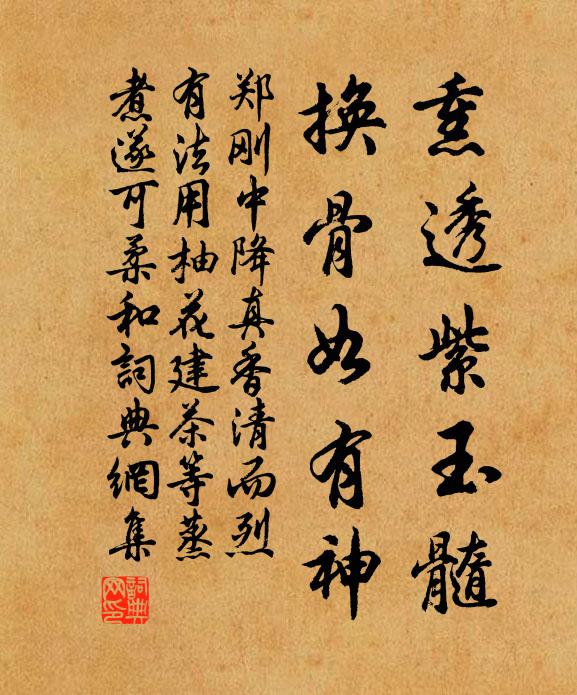 熏透紫玉髓
换骨如有神
郑刚中降真香清而烈
有法用柚花建茶等蒸
煮遂可柔和詞典網集
詞典
网印